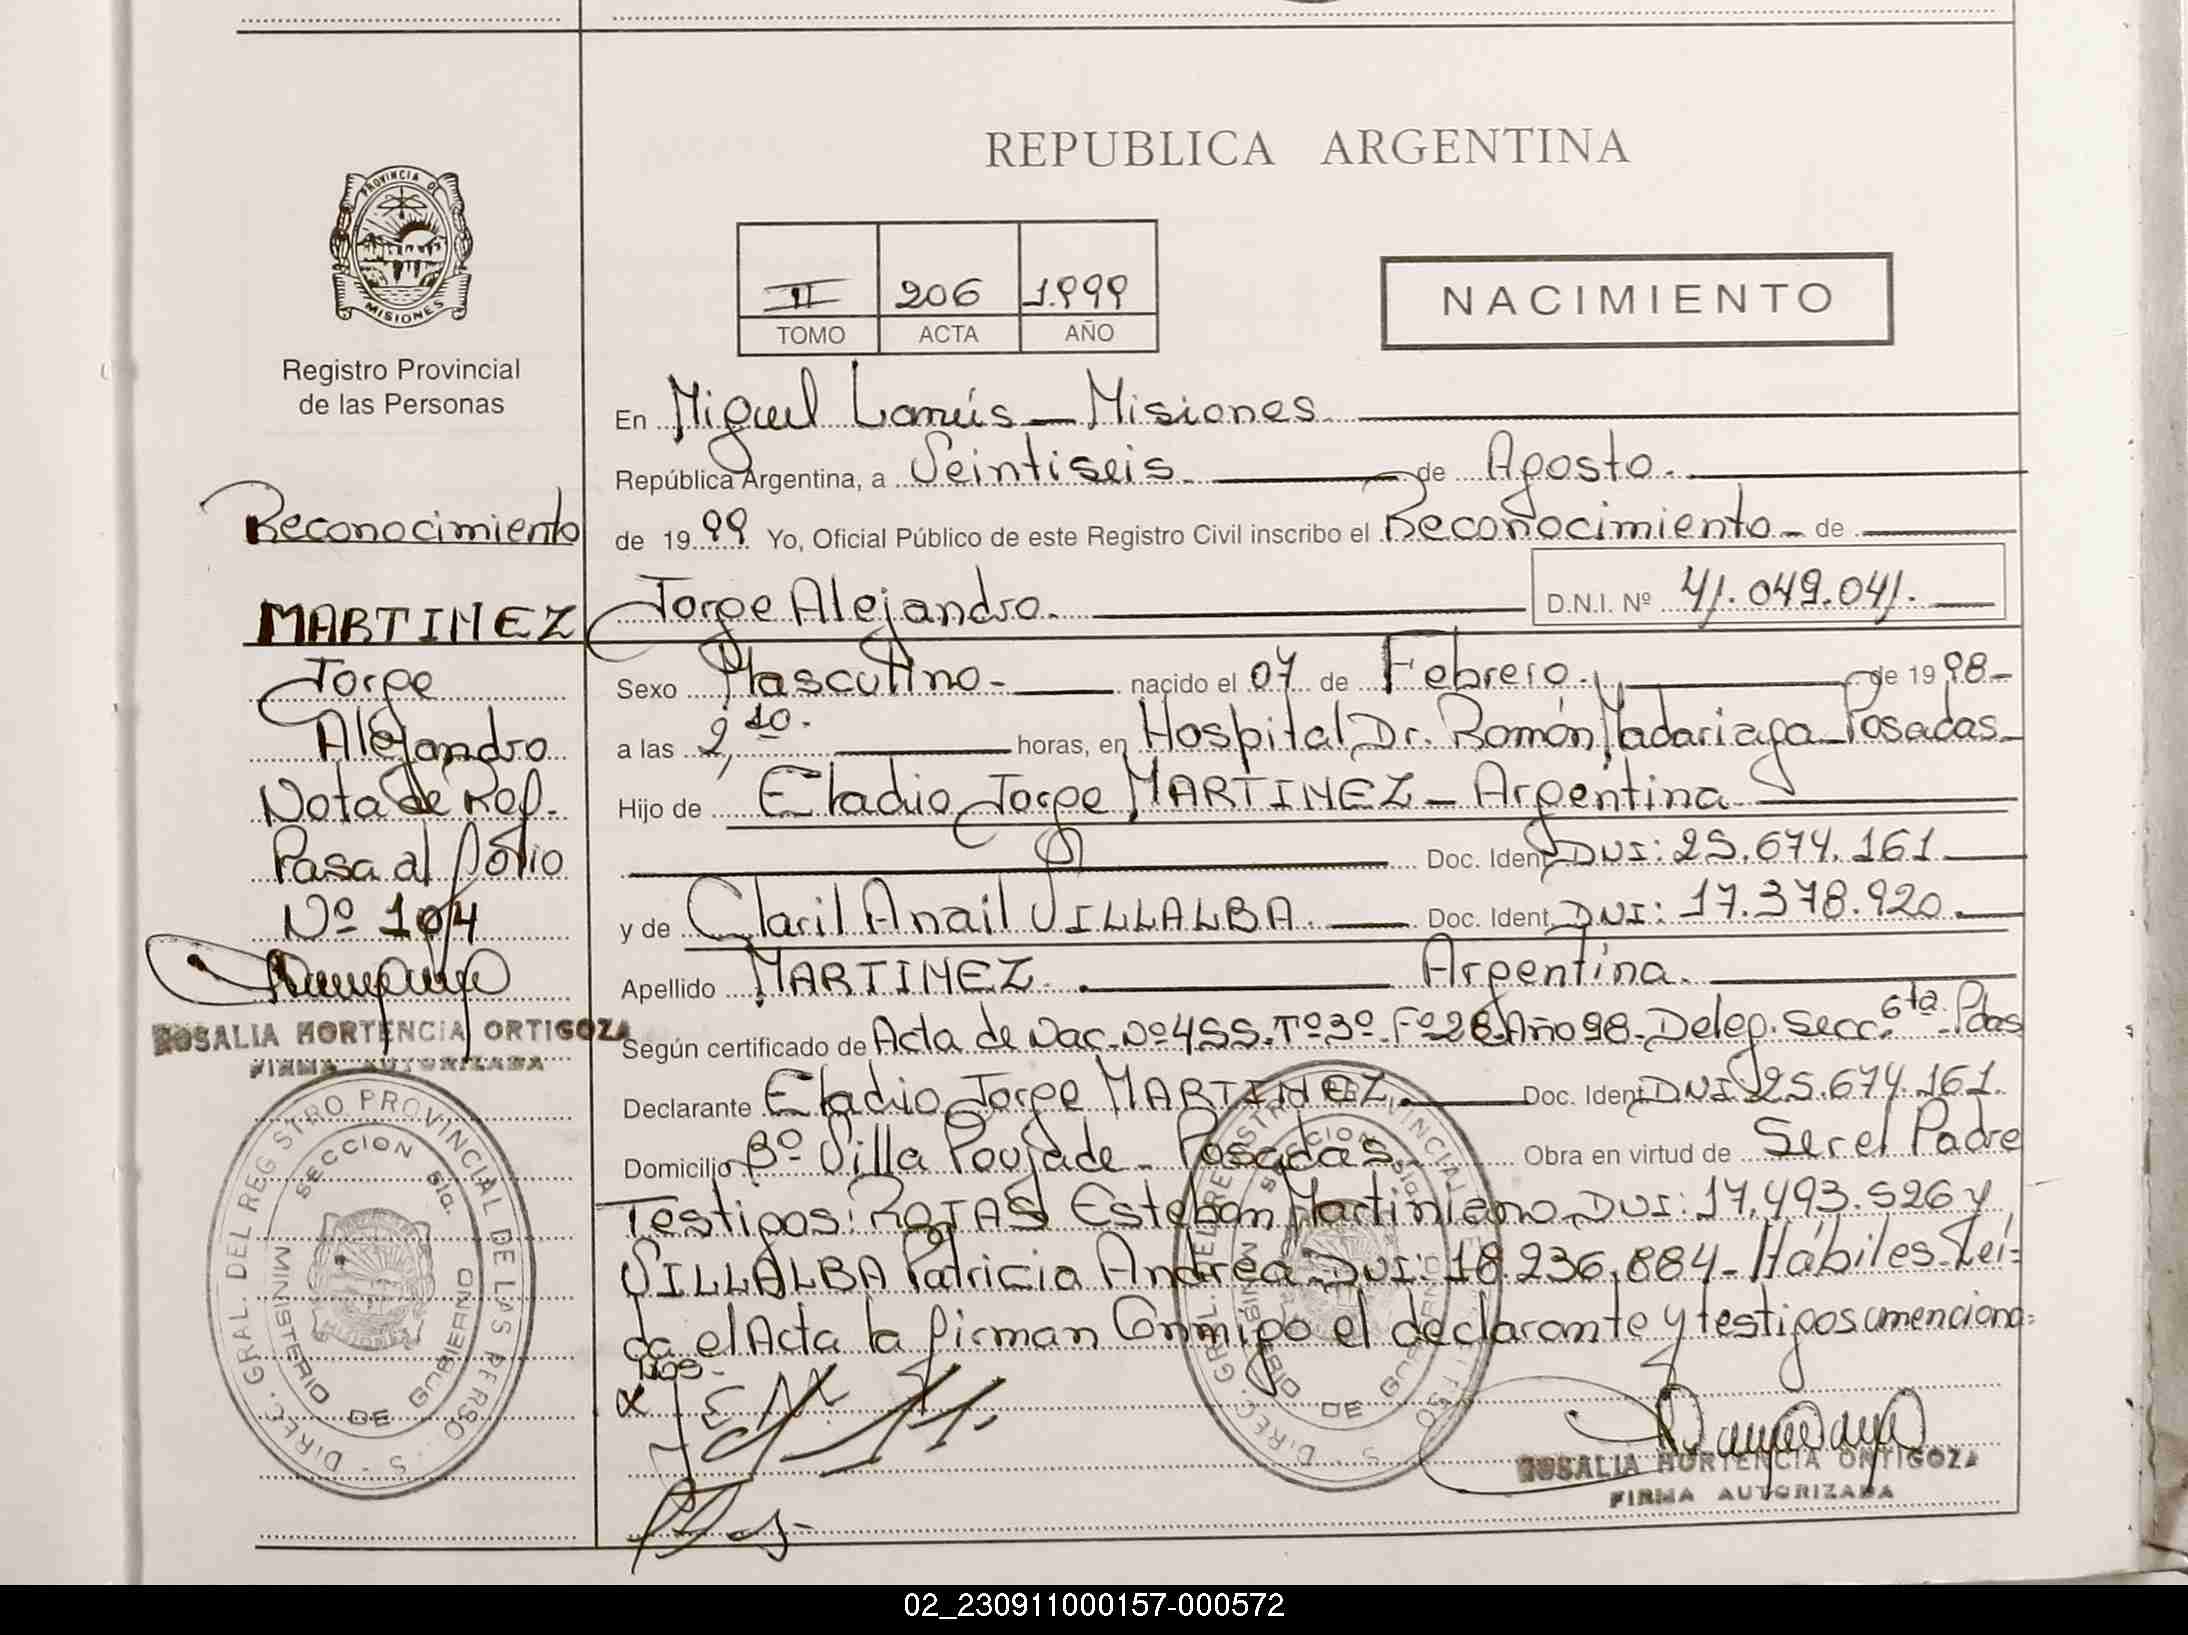 REPUBLICA ARGENTINA
PROVINCIA DE
MISIONES
Registro Provincial
de las Personas
II 206 1.999
TOMO ACTA AÑO
NACIMIENTO
Reconocimiento
MARTINEZ
Jorge
Alejandro
Nota de Ref.
Pasa al folio
Nº 104
ROSALIA HORTENCIA ORTIGOZA
FIRMA AUTORIZADA
DIREC. GRAL. DEL REGISTRO PROVINCIAL DE LAS PERSO S
SECCION 6ta.
MINISTERIO DE GOBIERNO
En Miguel Lanús - Misiones
República Argentina, a Veintiseis de Agosto.
de 1999 Yo, Oficial Público de este Registro Civil inscribo el Reconocimiento - de
Jorge Alejandro. D.N.I. Nº 41.049.041.
Sexo Masculino - nacido el 07 de Febrero. de 1998-
a las 2,10. horas, en Hospital Dr. Ramón Madariaga - Posadas -
Hijo de Eladio Jorge MARTINEZ - Argentina
Doc. Ident. DNI: 25.674.161
y de Claril Anail VILLALBA. Doc. Ident. DNI: 17.378.920.
Apellido MARTINEZ. Argentina.
Según certificado de Acta de Nac. Nº 455. Tº 3º. Fº 28. Año 98. Deleg. Secc. 6ta. Pdas
Declarante Eladio Jorge MARTINEZ. Doc. Ident. DNI 25.674.161.
Domicilio Bº Villa Poujade - Posadas. Obra en virtud de Ser el Padre
Testigos: ROJAS Esteban Martiniano DNI: 17.493.526 y
VILLALBA Patricia Andrea - DNI: 18.236.884 - Hábiles - Leí=
da el Acta la firman Conmigo el declarante y testigos menciona=
dos.
ROSALIA HORTENCIA ORTIGOZA
FIRMA AUTORIZADA
02_230911000157-000572